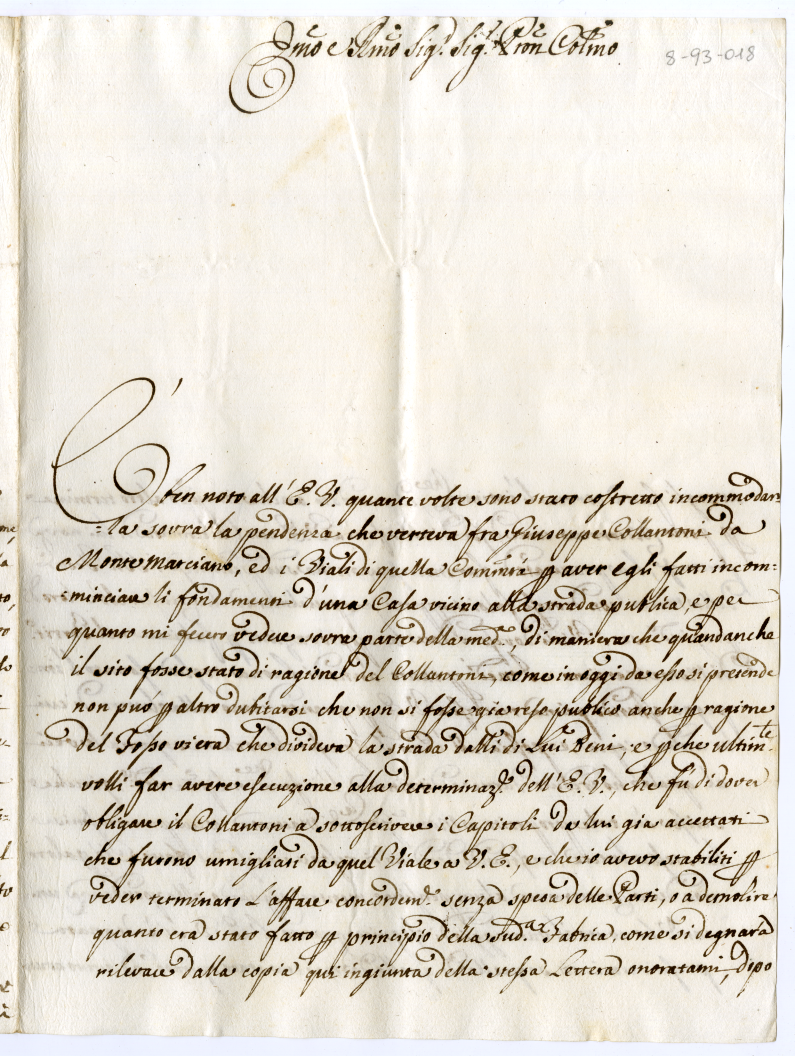 Illmo e Rmo Sigr. Sigr. Pron Colmo
8-93-018
É ben noto all' E. V. quante volte sono stato costretto incommodar=
=la sovra la pendenza che verteva fra Giuseppe Collantoni da
Monte Marciano, ed i Viali di quella Commtà p aver egli fatti incom=
=minciare li fondamenti d'una Casa vicino alla strada publica, e per
quanto mi fecero vedere sovra parte della med.a, di maniera che quand'anche
il sito fosse stato di ragione del Collantoni, come in oggi da esso si pretende
non può p altro dubitarsi che non si fosse gia reso publico anche p ragione
del Fosso vi era che divideva la strada dalli di Lui Beni, e pche ultim.te
volli far avere esecuzione alla determinaz.e dell' E. V., che fù di dover
obligare il Collantoni a sottoscrivere i Capitoli da lui gia accettati
che furono umigliati da quel Viale a V. E., e che io avevo stabiliti p
veder terminato l'affare concordem.e senza spesa delle Parti, o a demolire
quanto era stato fatto p principio della sud.a Fabrica, come si degnarà
rilevare dalla copia qui ingiunta della stessa Lettera onoratami, dipo